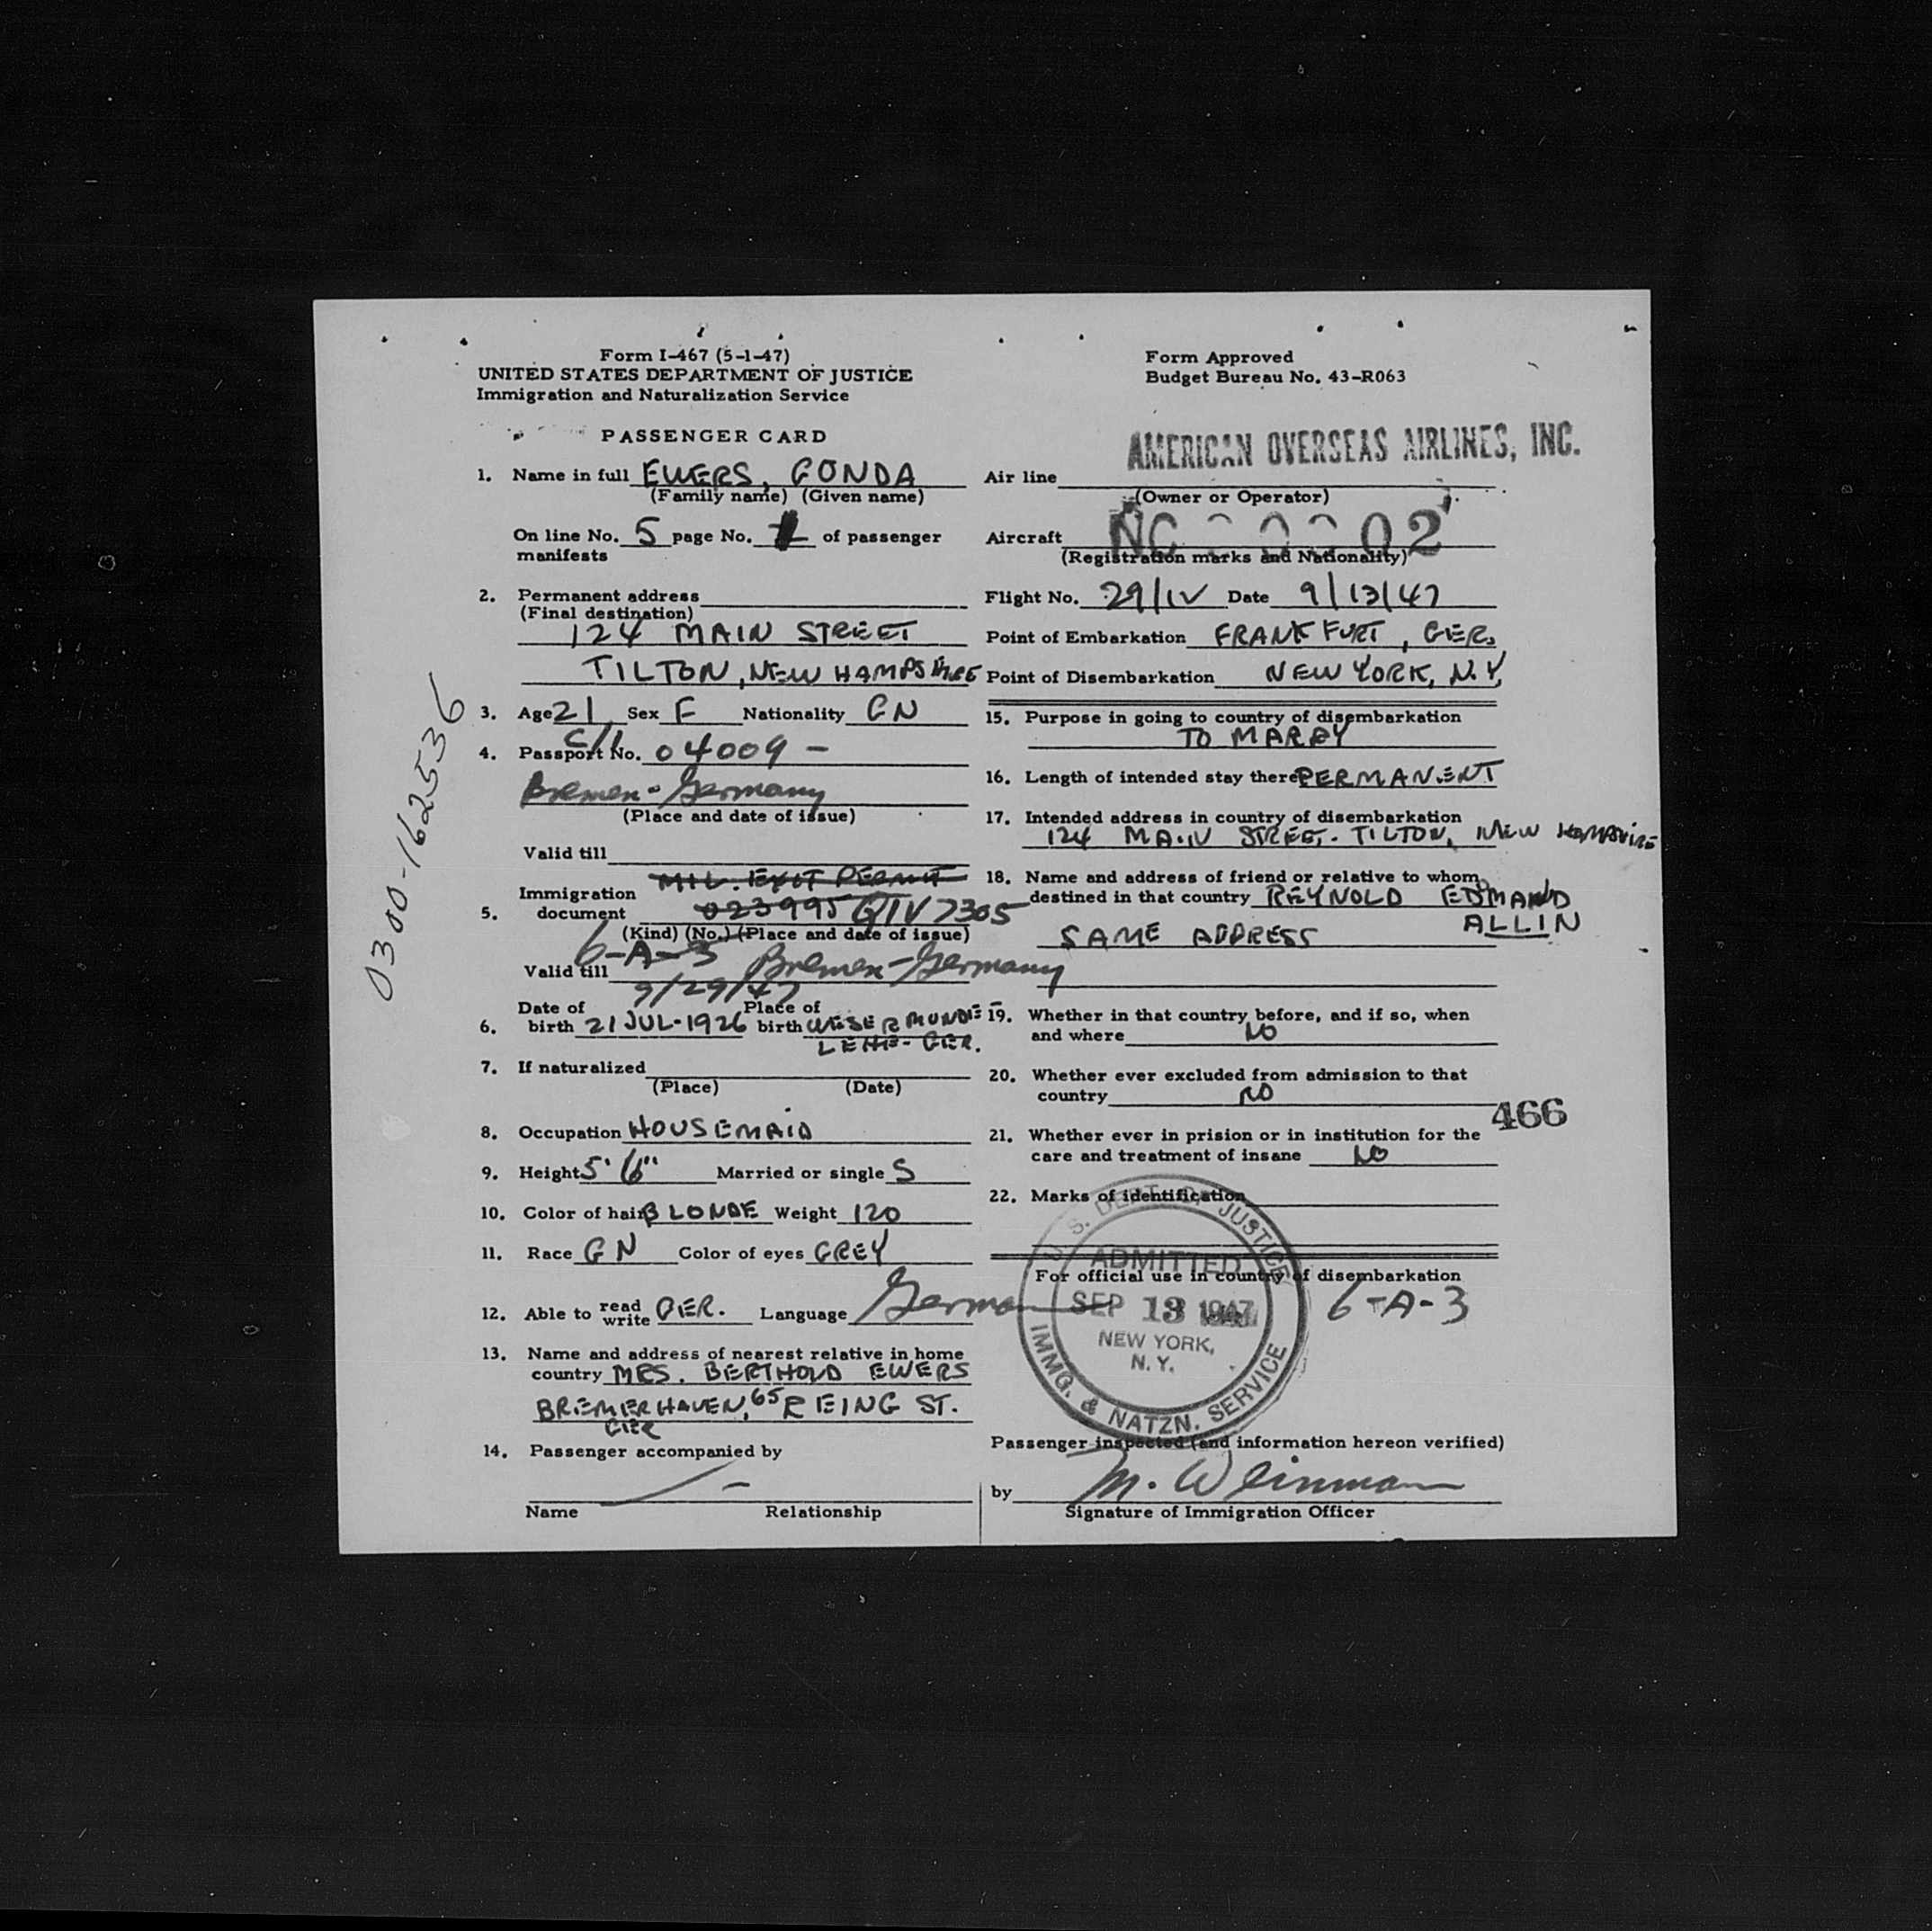 Form I-467 (5-1-47)
UNITED STATES DEPARTMENT OF JUSTICE
Immigration and Naturalization Service
PASSENGER CARD
1. Name in full EWERS, GONDA
(Family name) (Given name)
On line No. 5 page No. of passenger
manifests
2. Permanent address
(Final destination)
124 MAIN STREET
TILTON, NEW HAMPSHIRE
3. Age 21 Sex F Nationality GN
4. Passport No. 04009 -
Bremen - Germany
(Place and date of issue)
Valid till
MIL. EXIT PERMIT
Immigration
5. document 023995 QIV 7305
(Kind) (No.) (Place and date of issue)
6-A-3 Bremen - Germany
Valid till
9/29/47
Date of Place of
6. birth 21 JUL-1926 birth WESERMUNDE
LEHE - GER.
7. If naturalized
(Place) (Date)
8. Occupation HOUSEMAID
9. Height 5' 6" Married or single S
10. Color of hair BLONDE Weight 120
11. Race GN Color of eyes GREY
12. Able to read write GER. Language German
13. Name and address of nearest relative in home
country MRS. BERTHOLD EWERS
BREMERHAVEN, 65 REING ST.
GER
14. Passenger accompanied by
Name Relationship
Form Approved
Budget Bureau No. 43-R063
AMERICAN OVERSEAS AIRLINES, INC.
Air line
(Owner or Operator)
Aircraft NC 02
(Registration marks and Nationality)
Flight No. 29/IV Date 9/13/47
Point of Embarkation FRANKFURT, GER.
Point of Disembarkation NEW YORK, N.Y.
15. Purpose in going to country of disembarkation
TO MARRY
16. Length of intended stay there PERMANENT
17. Intended address in country of disembarkation
124 MAIN STREET - TILTON, NEW HAMPSHIRE
18. Name and address of friend or relative to whom
destined in that country REYNOLD EDMAND
ALLIN
SAME ADDRESS
19. Whether in that country before, and if so, when
and where NO
20. Whether ever excluded from admission to that
country NO
466
21. Whether ever in prision or in institution for the
care and treatment of insane NO
22. Marks of identification
For official use in country of disembarkation
6-A-3
U. S. DEPT. OF JUSTICE
ADMITTED
SEP 13 1947
NEW YORK,
N. Y.
IMMG. & NATZN. SERVICE
Passenger inspected (and information hereon verified)
by M. Weinman
Signature of Immigration Officer
0300-162536